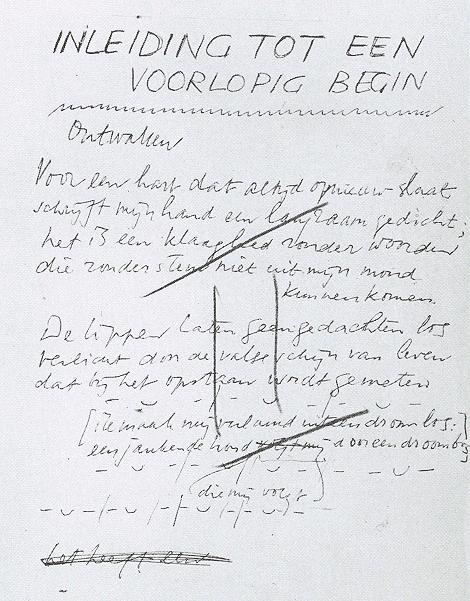 INLEIDING TOT EEN
VOORLOPIG BEGIN
Ontwaken
Voor een hart dat altijd opnieuw slaat
schrijft mijn hand een langzaam gedicht,
het is een klaaglied zonder woorden
die zonder stem niet uit mijn mond
kunnen komen.
De lippen laten geen gedachten los
verlicht door de valse schijn van leven
dat bij het opstaan wordt gemeten
[Ik maak mij uit een droom los:]
een jankende hond door een droombos
die mij volgt
het heeft